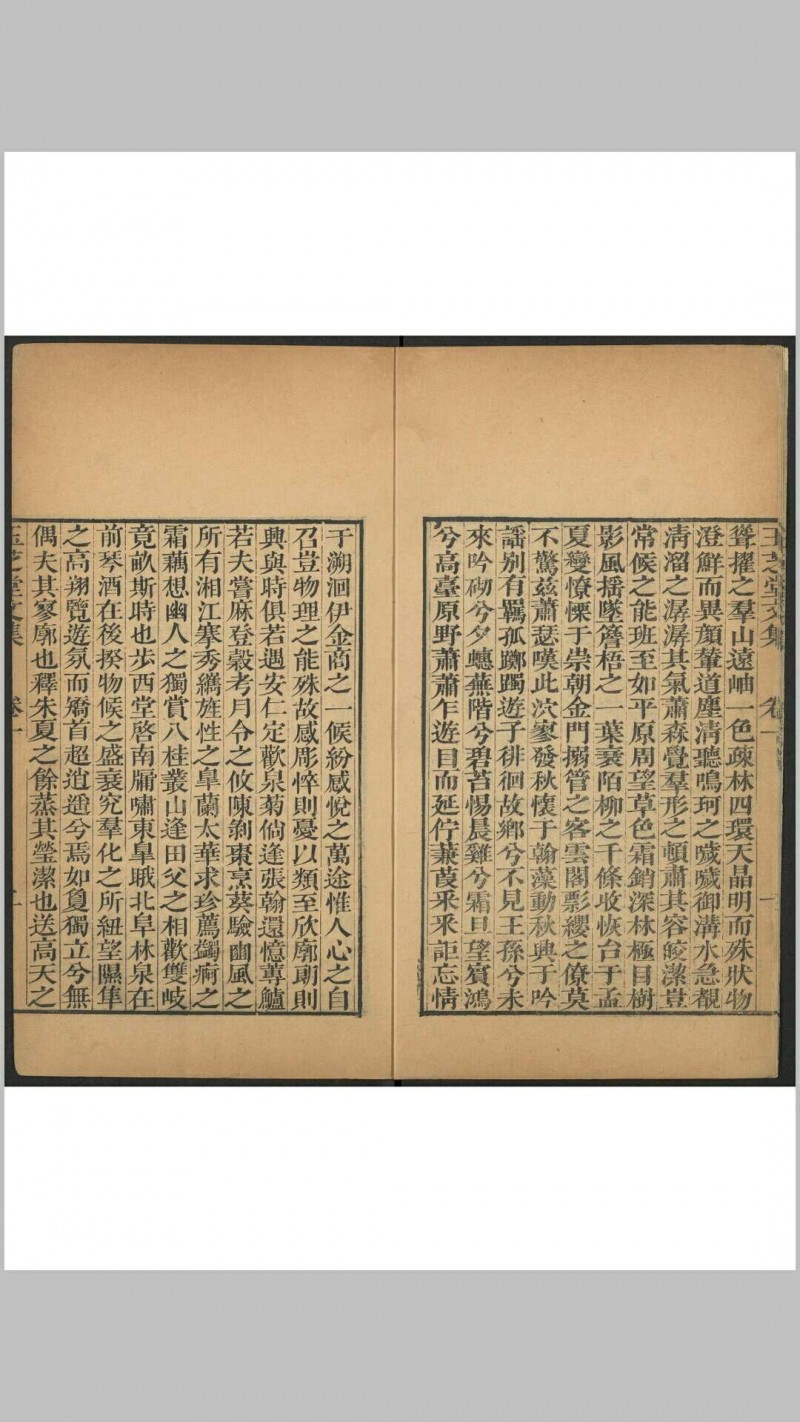 玉芝堂文集 卷一 一
聳擢之羣山遠岫一色疎林四環天晶明而殊狀物
澄鮮而異顔輦道塵淸聽鳴珂之噦噦御溝水急覩
淸溜之潺潺其氣蕭森覺羣形之頓肅其容皎潔豈
常候之能班至如平原周望草色霜銷深林極目樹
影風摇墜簷梧之一葉衰陌柳之千條收恢台于孟
夏變憭慄于崇朝金門搦管之客雲閣影纓之僚莫
不驚茲蕭瑟嘆此泬寥發秋懷于翰藻動秋興于吟
謡别有羈孤躑躅遊子徘徊故鄉兮不見王孫兮未
來吟砌兮夕蟪蕪階兮碧苔惕晨雞兮霜旦望賓鴻
兮高臺原野蕭蕭乍遊目而延佇蒹葭釆釆詎忘情
于溯洄伊金商之一候紛感悅之萬途惟人心之自
召豈物理之能殊故感彫悴則憂以類至欣廓朗則
興與時俱若遇安仁定歡泉菊倘逢張翰還憶蓴鱸
若夫嘗麻登穀考月令之攸陳剝棗烹葵驗豳風之
所有湘江搴秀纕旌性之皐蘭太華求珍薦蠲痾之
霜藕想幽人之獨賞八桂叢山逢田父之相歡雙岐
竟畝斯時也步西堂啓南牖嘯東皐眺北阜林泉在
前琴酒在後揆物候之盛衰究羣化之所紐望隰隼
之高翔覽遊氛而矯首超逍遥兮焉如敻獨立兮無
偶夫其寥廓也釋朱夏之餘蒸其瑩潔也送高天之
玉芝堂文集 卷一